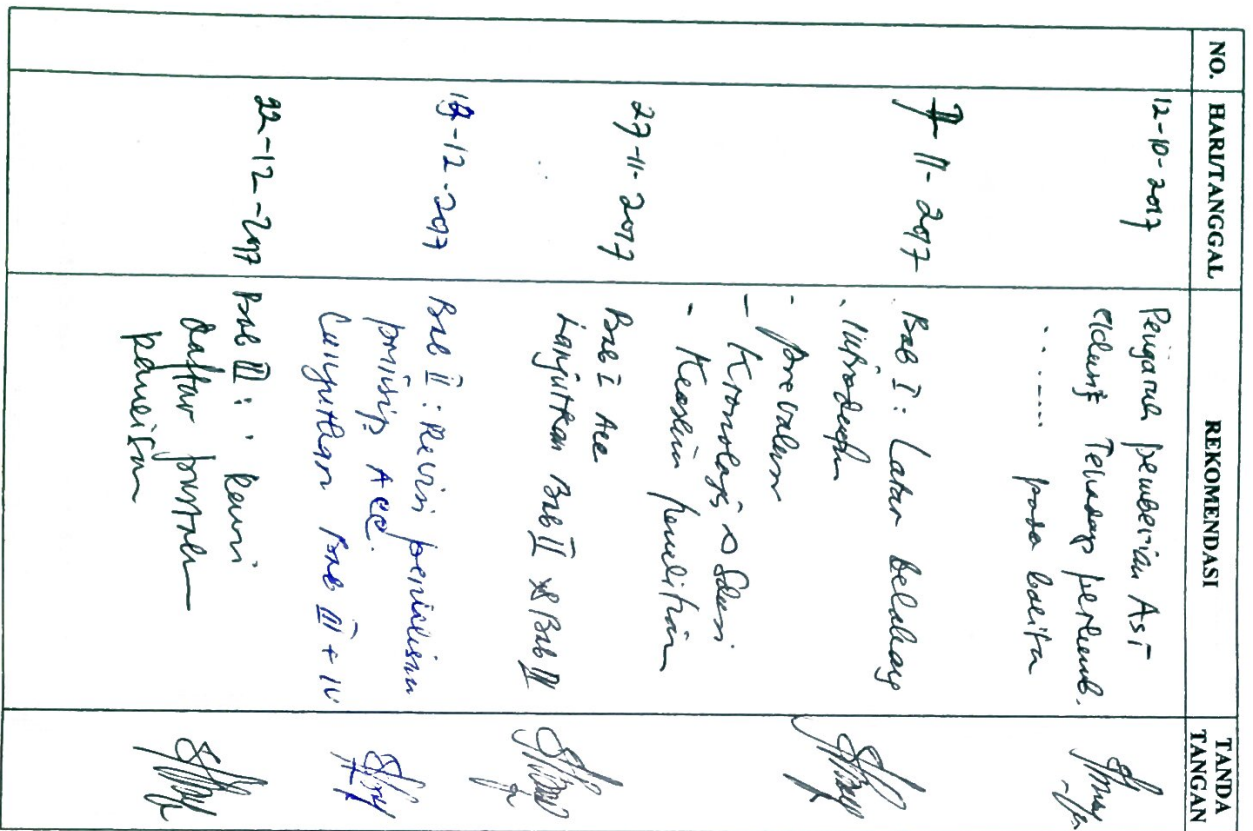 NO. HARI/TANGGAL REKOMENDASI TANDA TANGAN
12-10-2017 Pengaruh pemberian ASI
Terhadap perkemb.
....... pada balita
7-11-2017 Bab I : Latar belakang
- Introduction
- prevalensi
- Kronologi, Solusi
- Keaslian penelitian
27-11-2017 Bab I Acc
Lanjutkan Bab II & Bab III
19-12-2017 Bab II : Revisi penulisan
prinsip Acc.
Lanjutkan Bab III + IV
22-12-2017 Bab III : Revisi
daftar pustaka
penulisan